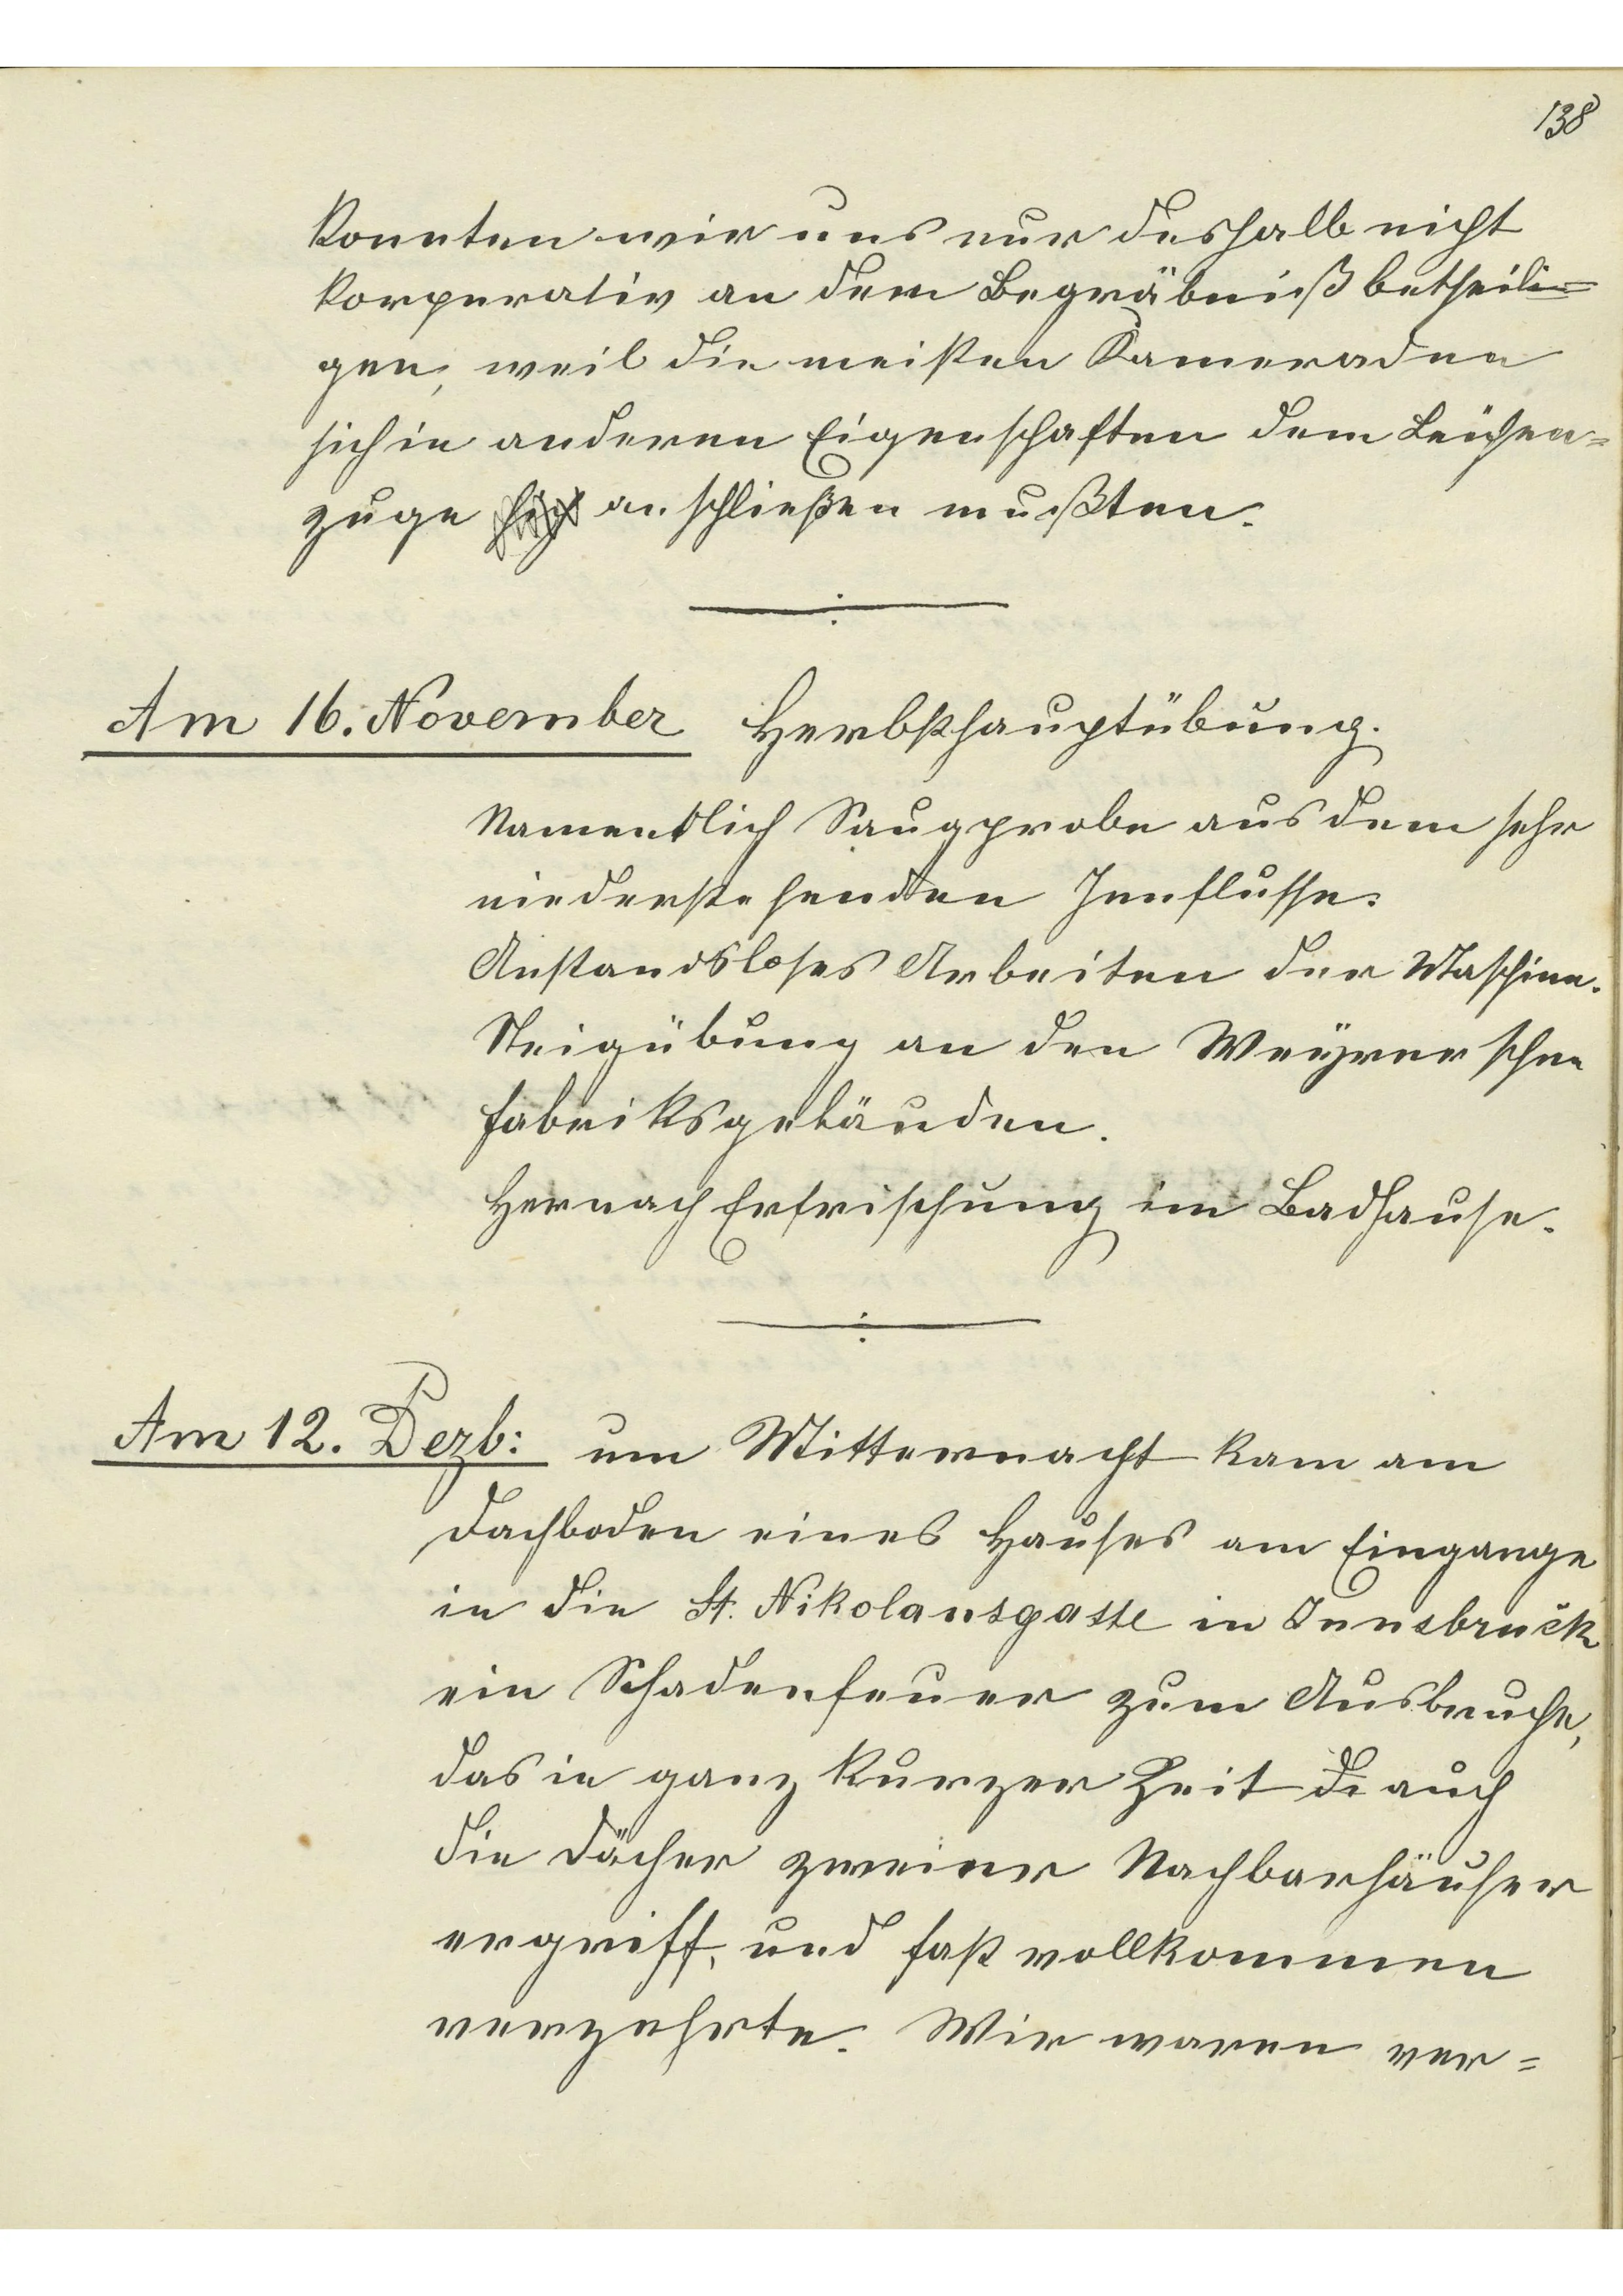 138
konnten wir uns nur deshalb nicht
korperativ an dem Begräbniß betheili=
gen, weil die meisten Kameraden
sich in anderen Eigenschaften dem Leichen=
zuge sich anschließen mußten.
Am 16. November Herbsthauptübung.
Namentlich Saugprobe aus dem sehr
niederstehenden Innflusse.
Anstandsloses Arbeiten der Maschine.
Steigübung an den Weyrer'schen
Fabriksgebäuden.
Hernach Erfrischung im Badhause.
Am 12. Dezb: um Mitternacht kam am
Dachboden eines Hauses am Eingange
in die St. Nikolausgasse in Innsbruck
ein Schadenfeuer zum Ausbruche,
das in ganz kurzer Zeit di auch
die Dächer zweier Nachbarhäuser
ergriff, und fast vollkommen
verzehrte. Wir waren ver=